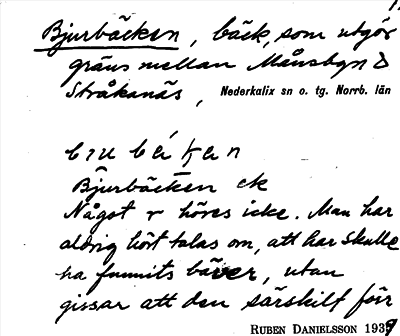 Bjurbäcken, bäck, som utgör
gräns mellan Månsbyn o
Stråkanäs, Nederkalix sn o. tg. Norrb. län
Bjurbäcken ck
Något r höres icke. Man har
aldrig hört talas om, att här skulle
ha funnits bäver, utan
gissar att den särskilt förr
RUBEN DANIELSSON 1939